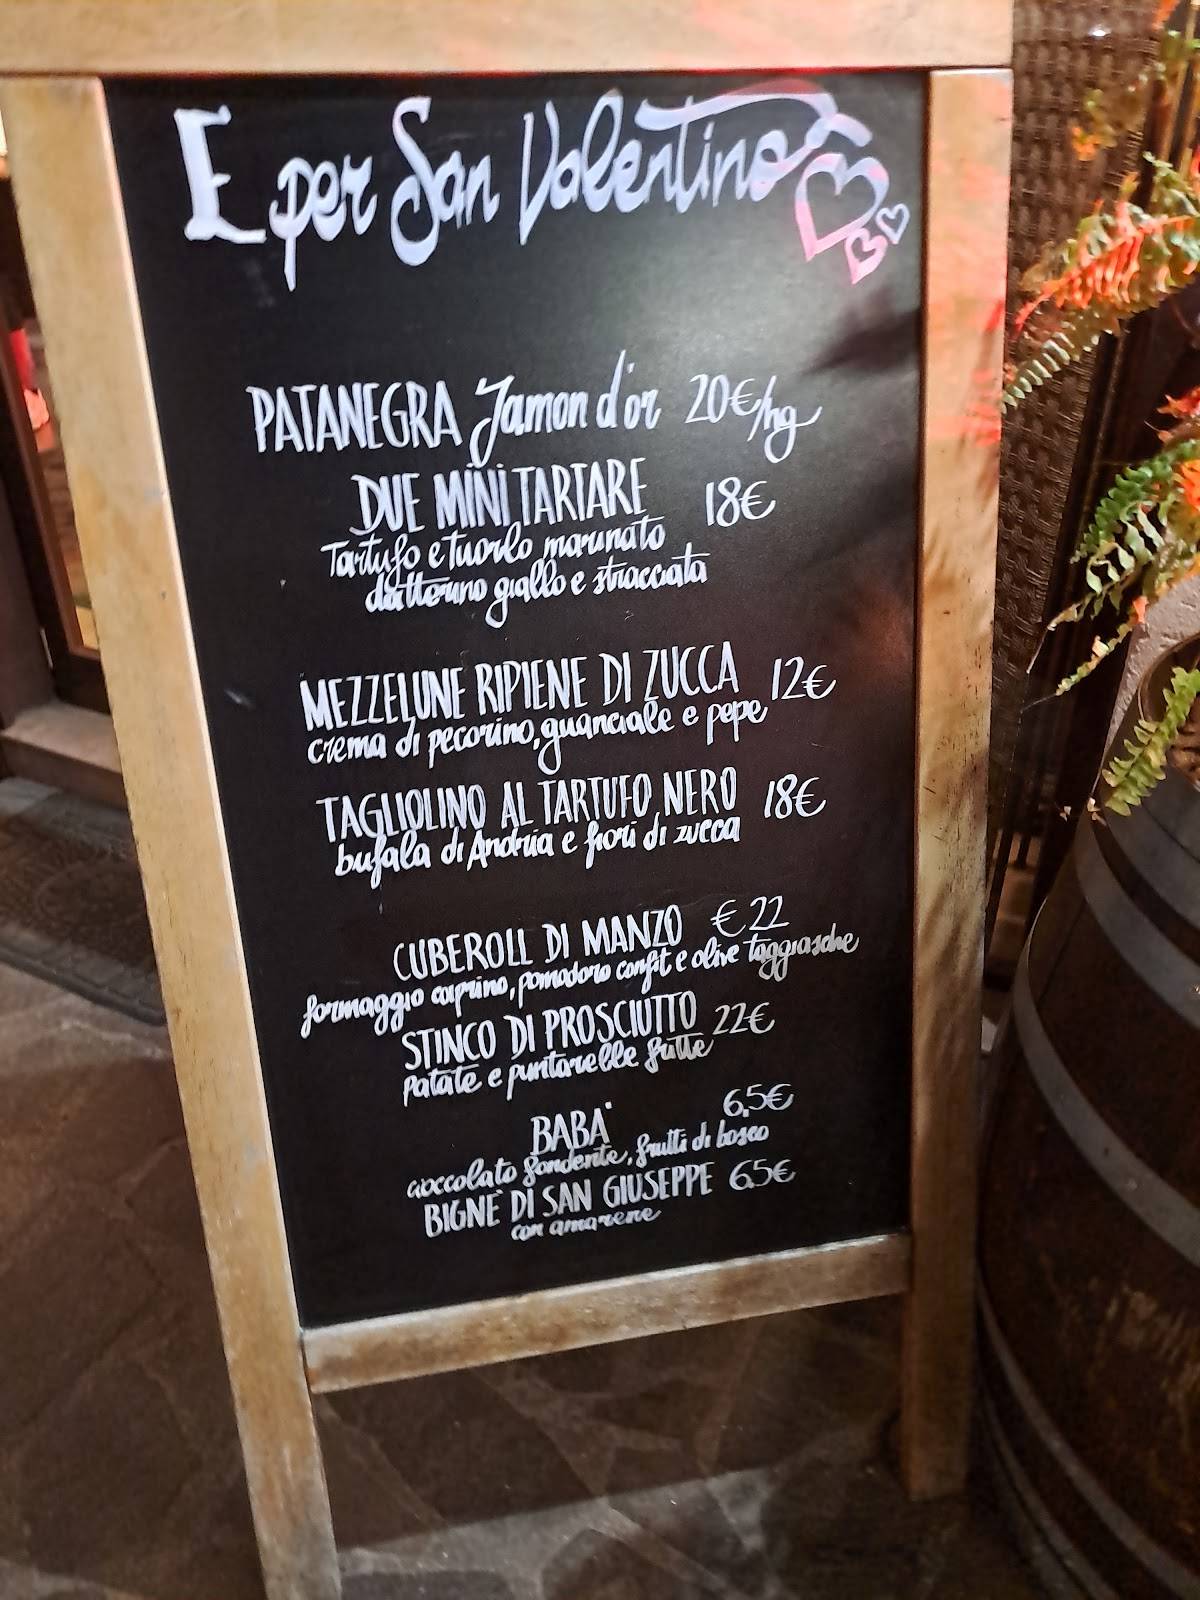 E per San Valentino
PATANEGRA Jamon d'or 20€/hg
DUE MINI TARTARE 18€
Tartufo e tuorlo marinato
datterino giallo e stracciata
MEZZELUNE RIPIENE DI ZUCCA 12€
crema di pecorino, guanciale e pepe
TAGLIOLINO AL TARTUFO NERO 18€
bufala di Andria e fiori di zucca
CUBEROLL DI MANZO €22
formaggio caprino, pomodoro confit e olive taggiasche
STINCO DI PROSCIUTTO 22€
patate e puntarelle fritte
BABA' 6.5€
cioccolato fondente, frutti di bosco
BIGNÈ DI SAN GIUSEPPE 6.5€
con amarene